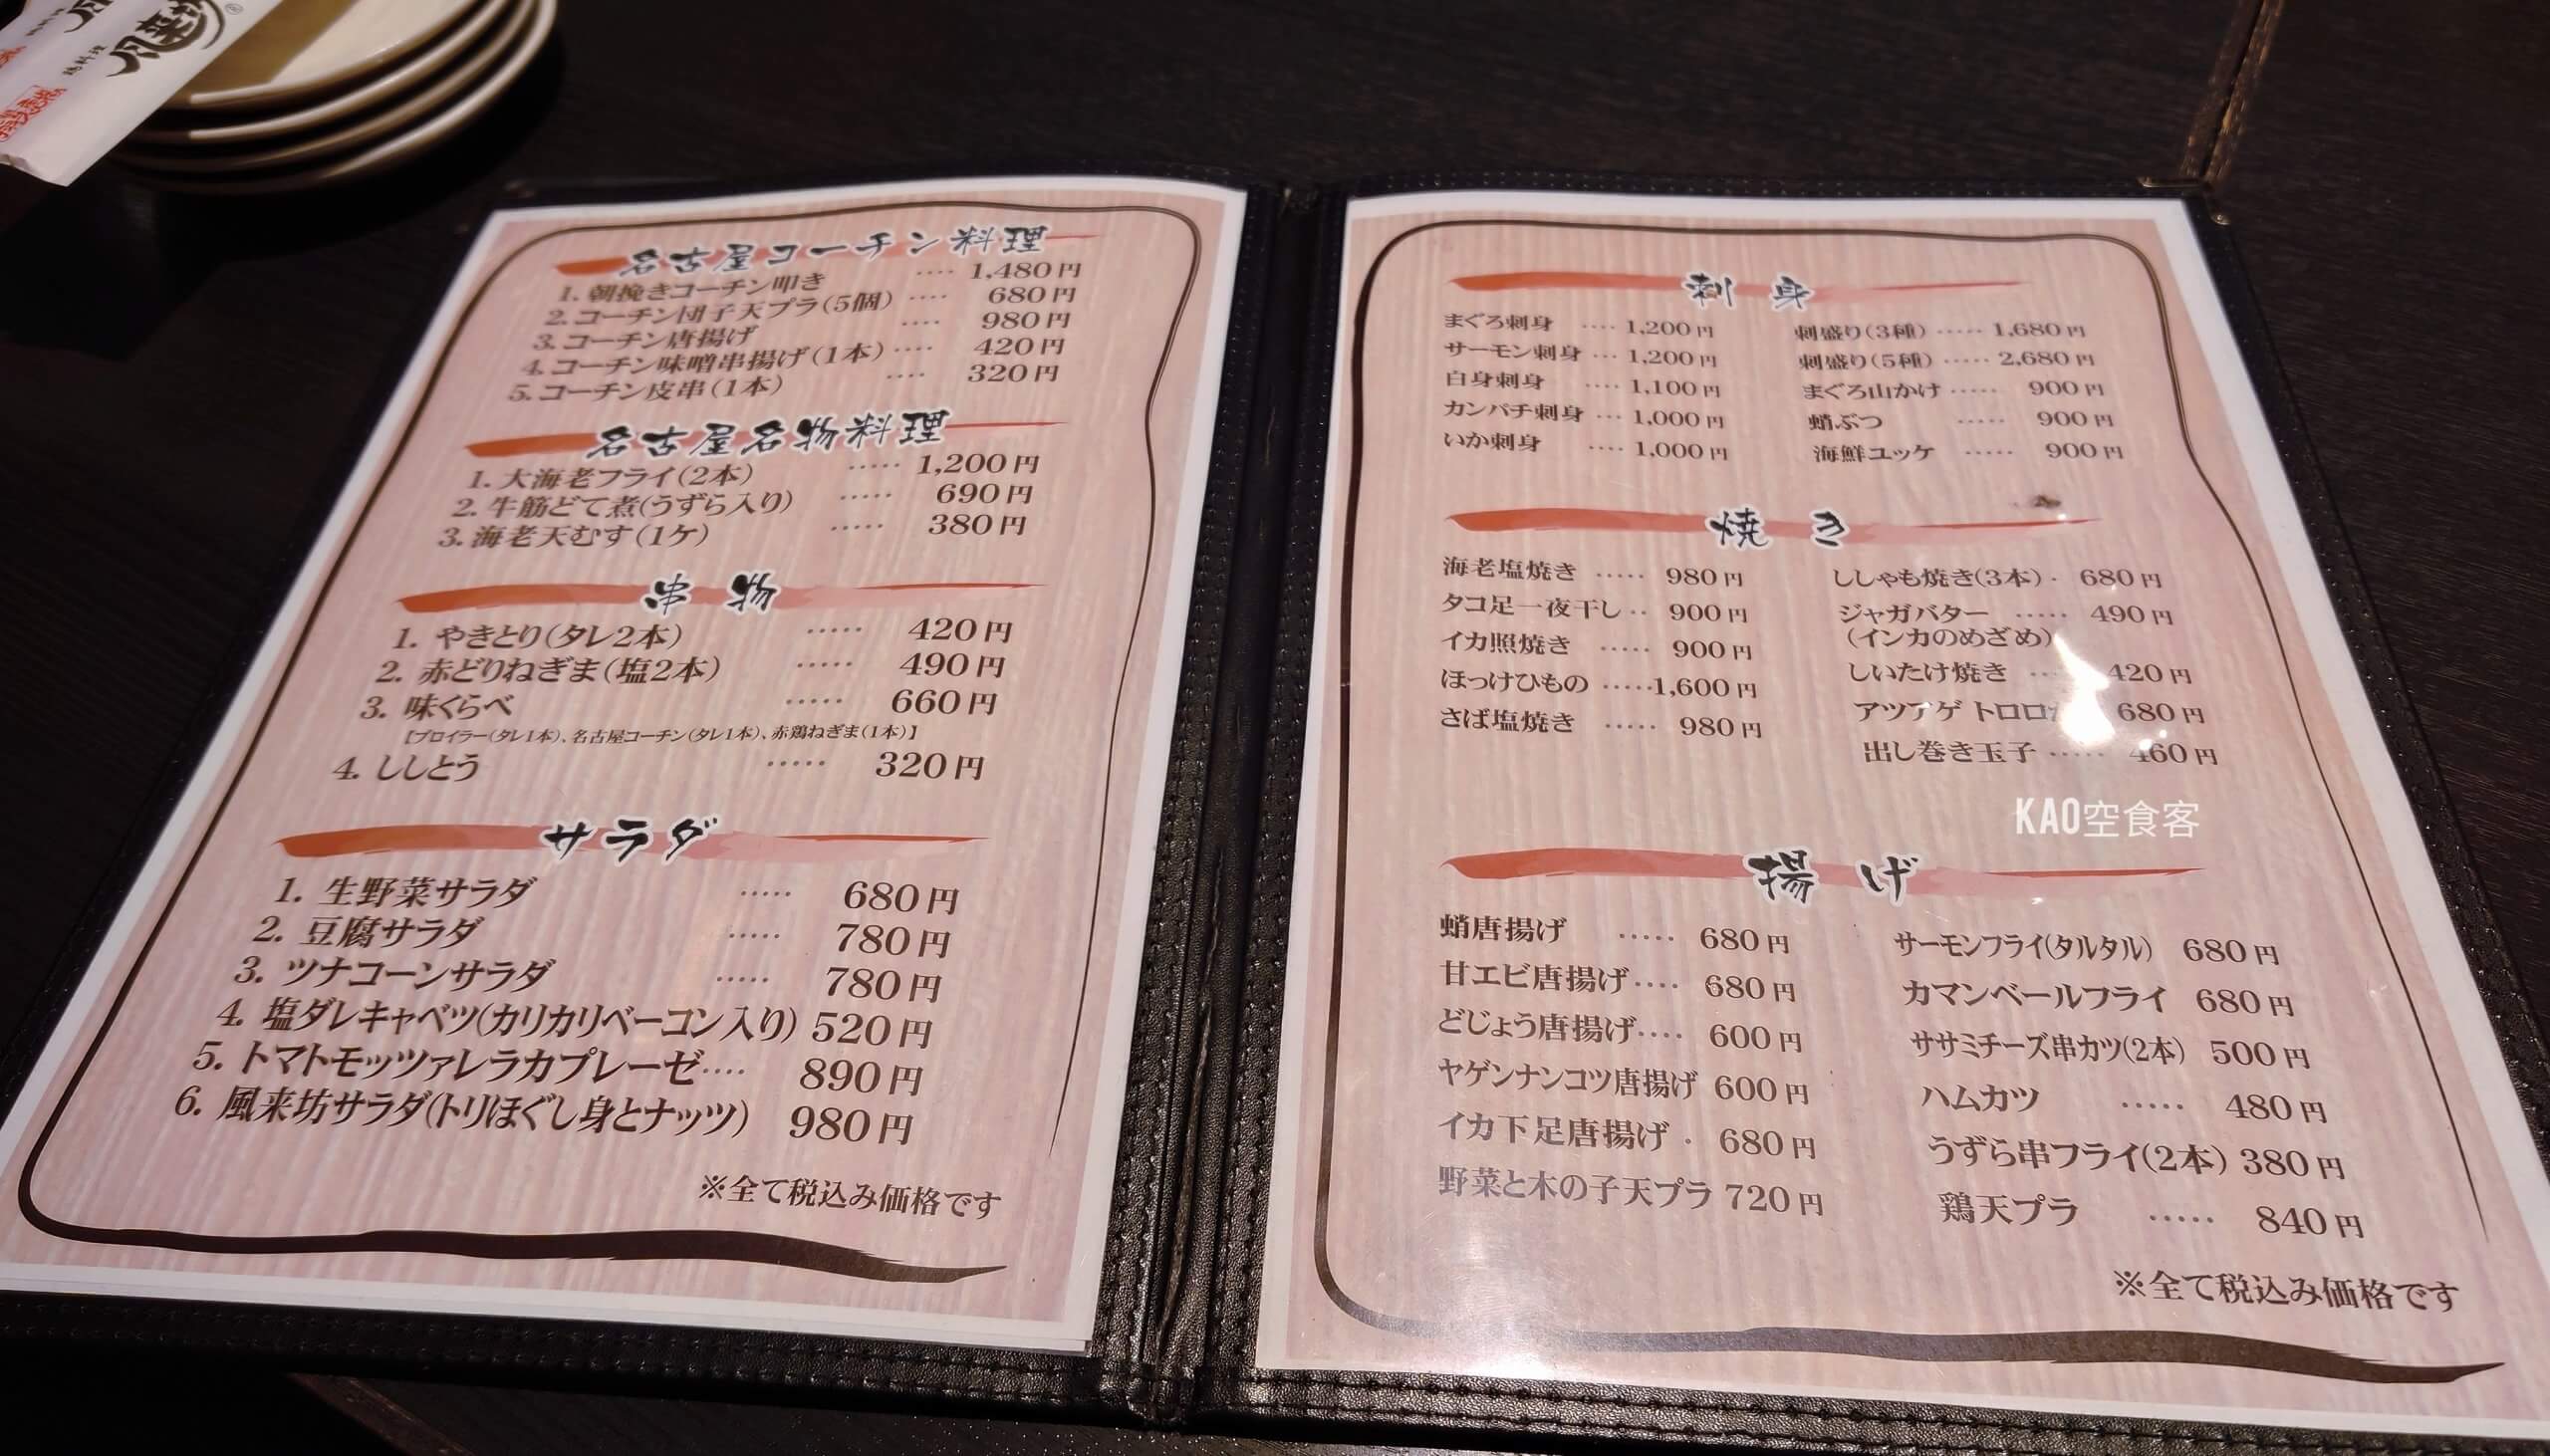 鶏料理
風来坊®
名古屋コーチン料理
1. 朝挽きコーチン叩き ‥‥ 1,480円
2. コーチン団子天プラ(5個) ‥‥ 680円
3. コーチン唐揚げ ‥‥ 980円
4. コーチン味噌串揚げ(1本) ‥‥ 420円
5. コーチン皮串(1本) ‥‥ 320円
名古屋名物料理
1. 大海老フライ(2本) ‥‥‥ 1,200円
2. 牛筋どて煮(うずら入り) ‥‥‥ 690円
3. 海老天むす(1ケ) ‥‥‥ 380円
串物
1. やきとり(タレ2本) ‥‥‥ 420円
2. 赤どりねぎま(塩2本) ‥‥‥ 490円
3. 味くらべ ‥‥‥ 660円
【ブロイラー(タレ1本)、名古屋コーチン(タレ1本)、赤鶏ねぎま(1本)】
4. ししとう ‥‥‥ 320円
サラダ
1. 生野菜サラダ ‥‥‥ 680円
2. 豆腐サラダ ‥‥‥ 780円
3. ツナコーンサラダ ‥‥‥ 780円
4. 塩ダレキャベツ(カリカリベーコン入り) 520円
5. トマトモッツァレラカプレーゼ‥‥ 890円
6. 風来坊サラダ(トリほぐし身とナッツ) 980円
※全て税込み価格です
刺身
まぐろ刺身 ‥‥ 1,200円
サーモン刺身 ‥‥ 1,200円
白身刺身 ‥‥ 1,100円
カンパチ刺身 ‥‥ 1,000円
いか刺身 ‥‥ 1,000円
刺盛り(3種) ‥‥‥ 1,680円
刺盛り(5種) ‥‥‥ 2,680円
まぐろ山かけ ‥‥‥ 900円
蛸ぶつ ‥‥‥ 900円
海鮮ユッケ ‥‥‥ 900円
焼き
海老塩焼き ‥‥‥ 980円
タコ足一夜干し‥ 900円
イカ照焼き ‥‥‥ 900円
ほっけひもの ‥‥‥1,600円
さば塩焼き ‥‥‥ 980円
ししゃも焼き(3本)・ 680円
ジャガバター ‥‥‥ 490円
(インカのめざめ)
しいたけ焼き ‥ 420円
アツアゲ トロロ 680円
出し巻き玉子 ‥‥‥ 460円
KAO空食客
揚げ
蛸唐揚げ ‥‥‥ 680円
甘エビ唐揚げ‥‥ 680円
どじょう唐揚げ‥‥ 600円
ヤゲンナンコツ唐揚げ 600円
イカ下足唐揚げ・ 680円
野菜と木の子天プラ 720円
サーモンフライ(タルタル) 680円
カマンベールフライ 680円
ササミチーズ串カツ(2本) 500円
ハムカツ ‥‥‥ 480円
うずら串フライ(2本) 380円
鶏天プラ ‥‥‥ 840円
※全て税込み価格です